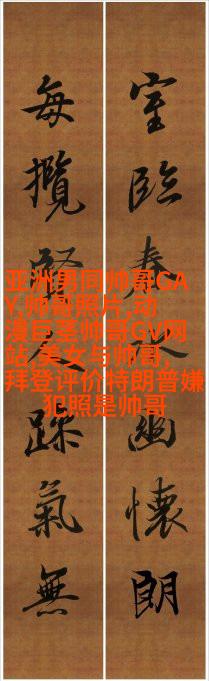 室臨春水幽懷朗
每攬賢氣無
亚洲男同帅哥GA
Y,帅哥照片,动
漫巨茎帅哥GV网
站,美女与帅哥,
拜登评价特朗普嫌
犯照是帅哥